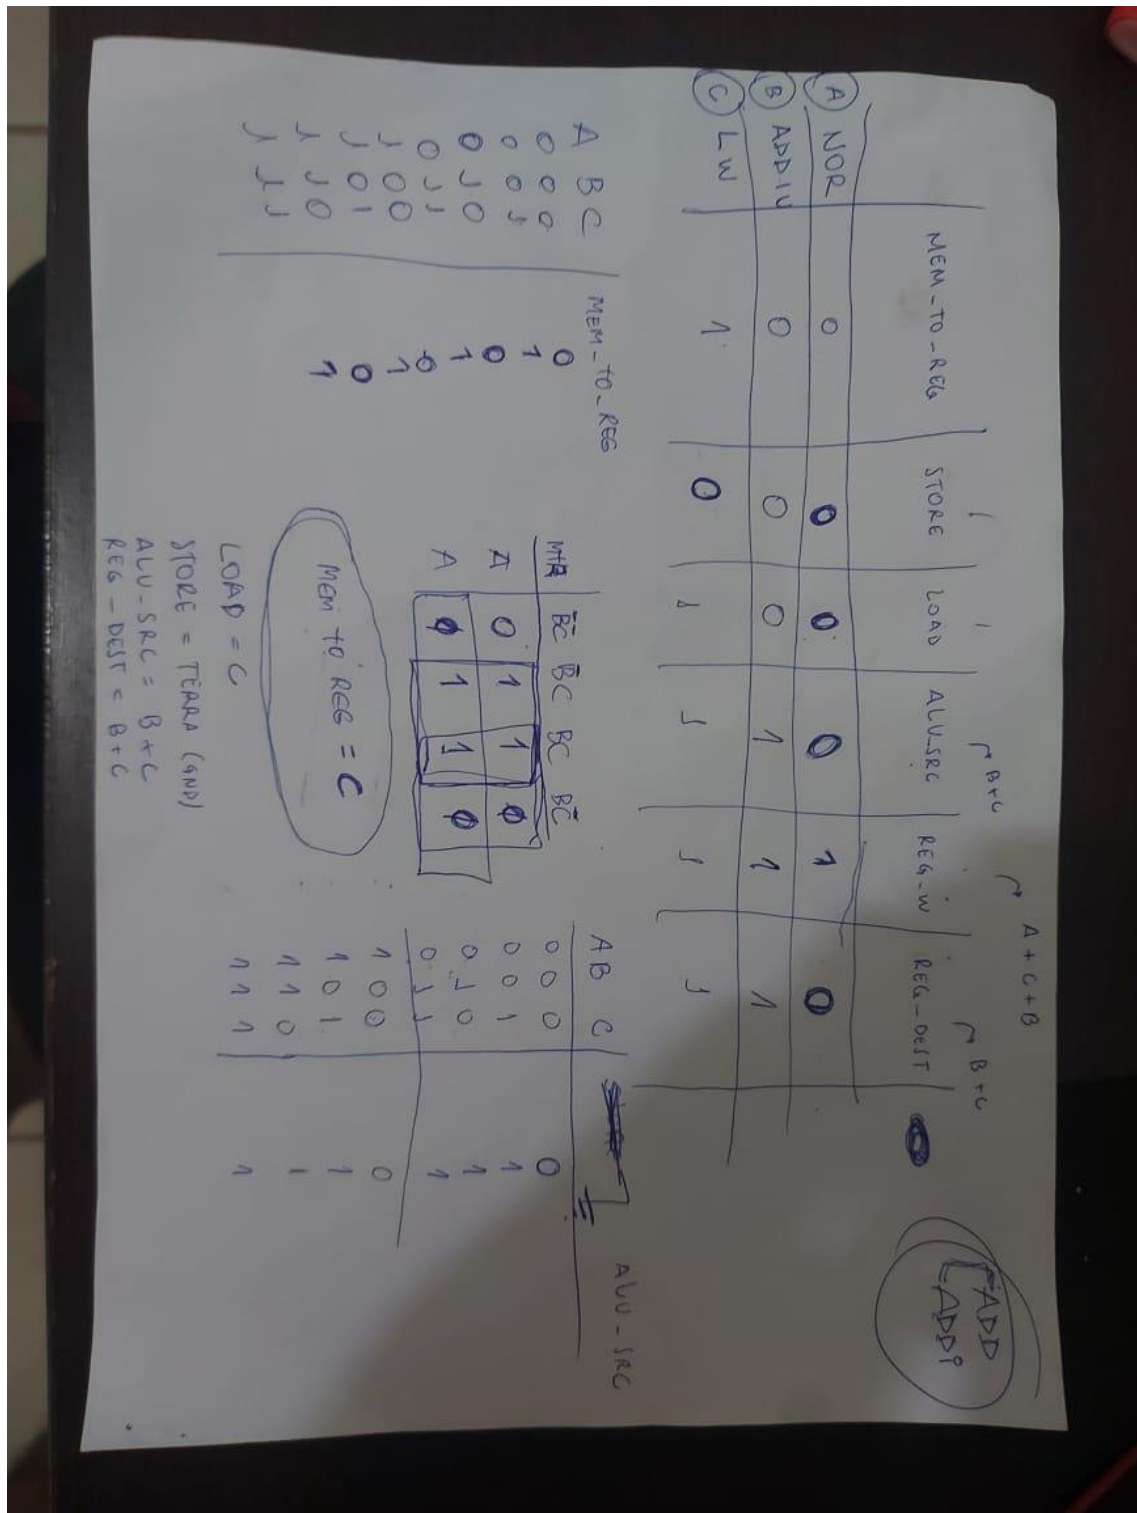 ADD
ADDI
A + C + B
B+C
B+C
MEM_TO_REG STORE LOAD ALU_SRC REG_W REG_DEST
A NOR 0 0 0 0 1 0
B ADDIU 0 0 0 1 1 1
C LW 1 0 1 1 1 1
A B C MEM_TO_REG
0 0 0 0
0 0 1 1
0 1 0 0
0 1 1 1
1 0 0 0
1 0 1 1
1 1 0 0
1 1 1 1
MTR B̄C̄ B̄C BC BC̄
A 0 1 1 0
A 0 1 1 0
MEM TO REG = C
LOAD = C
STORE = TERRA (GND)
ALU-SRC = B+C
REG-DEST = B+C
A B C ALU-SRC
0 0 0 0
0 0 1 1
0 1 0 1
0 1 1 1
1 0 0 0
1 0 1 1
1 1 0 1
1 1 1 1